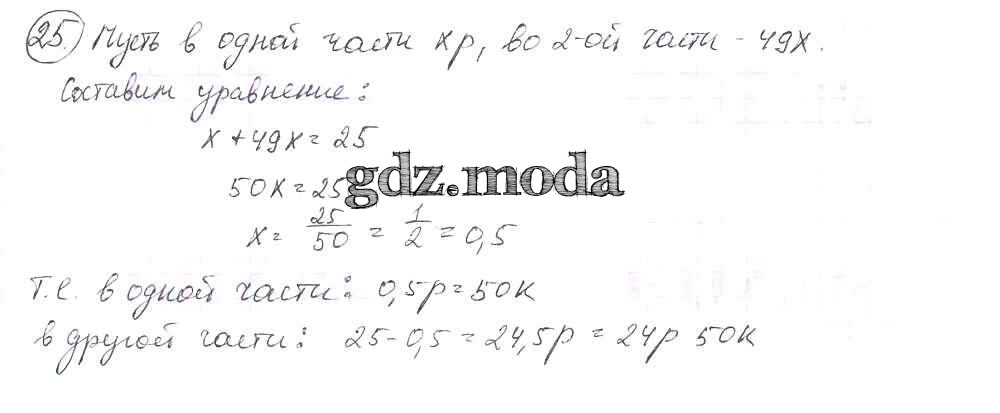 25. Пусть в одной части xр, во 2-ой части - 49x.
Составим уравнение:
x + 49x = 25
50x = 25
gdz.moda
x = 25/50 = 1/2 = 0,5
Т.е. в одной части: 0,5р = 50к
в другой части: 25 - 0,5 = 24,5р = 24р 50к